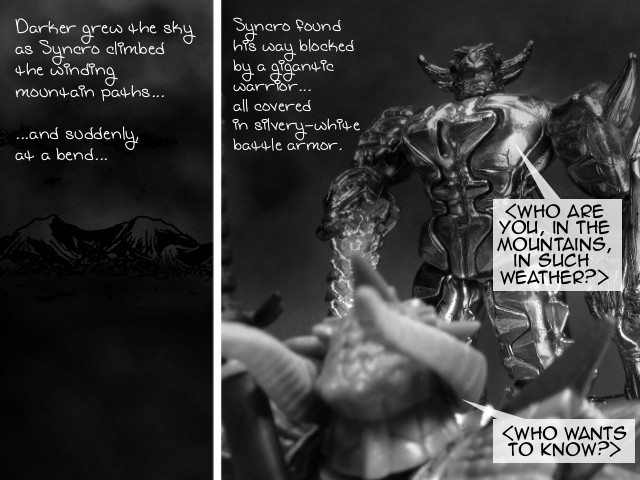 Darker grew the sky
as Syncro climbed
the winding
mountain paths...
...and suddenly,
at a bend...
Syncro found
his way blocked
by a gigantic
warrior...
all covered
in silvery-white
battle armor.
<WHO ARE
YOU, IN THE
MOUNTAINS,
IN SUCH
WEATHER?>
<WHO WANTS
TO KNOW?>